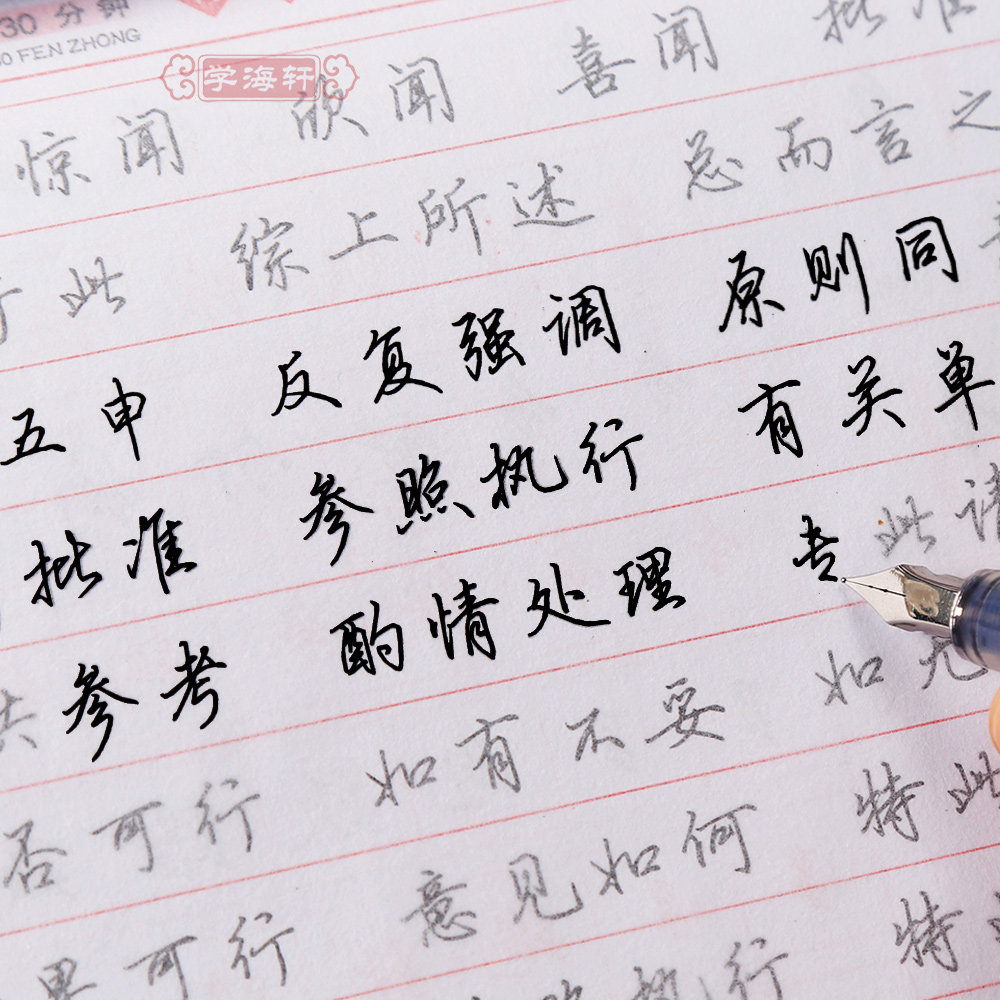 30 分钟
FEN ZHONG
学海轩
惊闻 欣闻 喜闻 批准
此 综上所述 总而言之
五申 反复强调 原则同
批准 参照执行 有关单
参考 酌情处理 专此请
如有不妥 如无
否可行 意见如何 特此
可行 参照执行 特